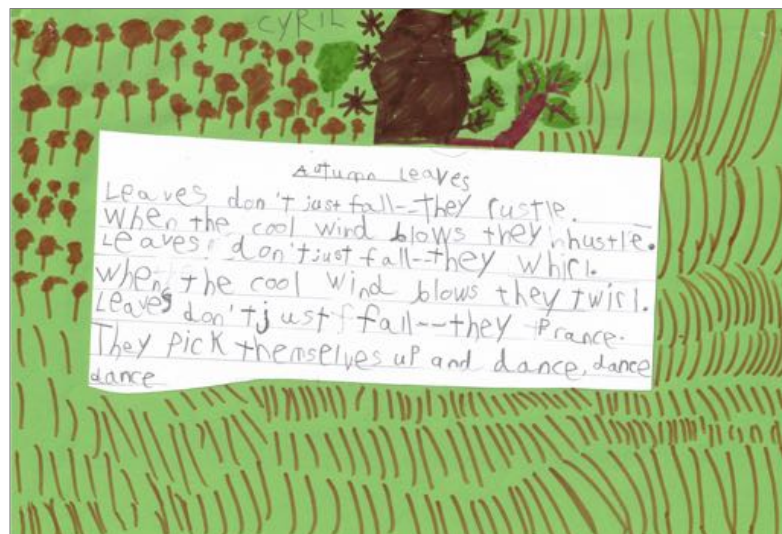 CYRIL
Autumn Leaves
Leaves don't just fall--they rustle.
When the cool wind blows they hustle.
Leaves don't just fall--they whirl.
When the cool wind blows they twirl.
Leaves don't just fall--they Prance.
They Pick themselves up and dance, dance
dance